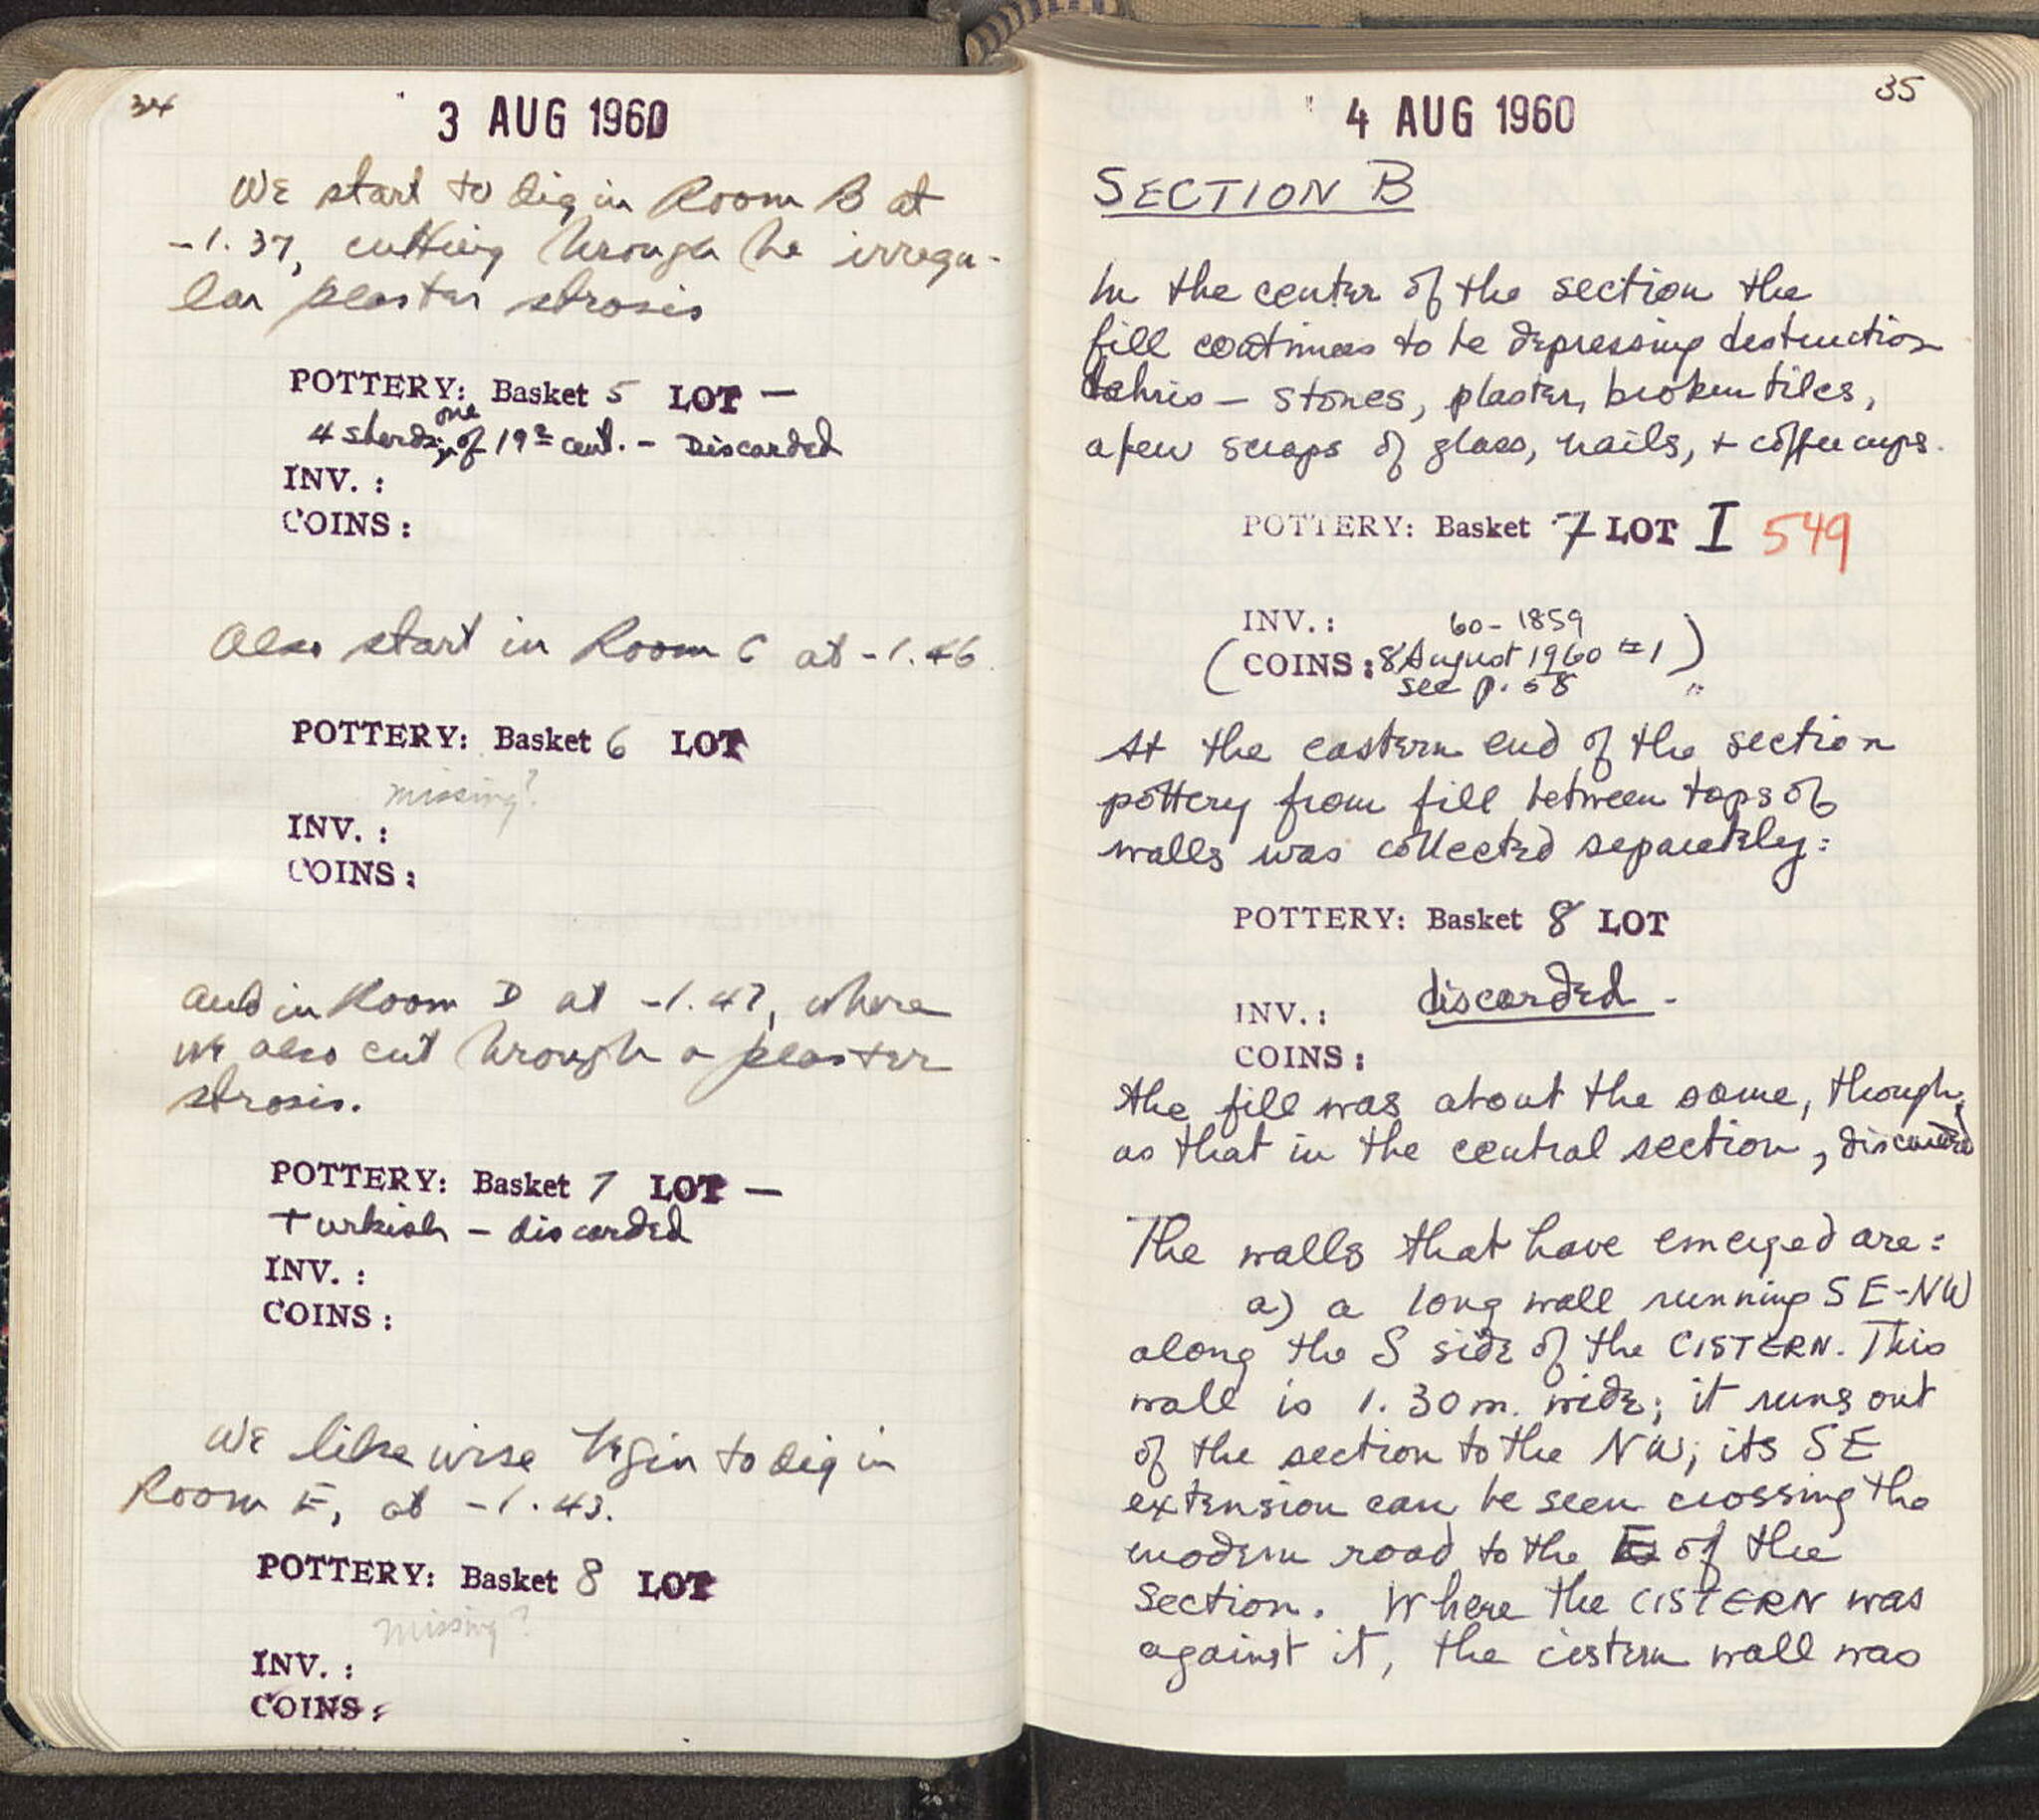 34
3 AUG 1960
We start to dig in Room B at
-1.37, cutting through the irregu-
lar plaster strosis
POTTERY: Basket 5 LOT —
one
4 sherds; of 19th cent. - Discarded
INV. :
COINS :
Also start in Room C at -1.46
POTTERY: Basket 6 LOT
missing?
INV. :
COINS :
and in Room D at -1.47, where
we also cut through a plaster
strosis.
POTTERY: Basket 7 LOT —
Turkish - discarded
INV. :
COINS :
We likewise begin to dig in
Room E, at -1.43.
POTTERY: Basket 8 LOT
missing?
INV. :
COINS :
35
4 AUG 1960
SECTION B
In the center of the section the
fill continues to be depressing destruction
debris - stones, plaster, broken tiles,
a few scraps of glass, nails, + coffee cups.
POTTERY: Basket 7 LOT I 549
INV. : 60-1859
(COINS : 8 August 1960 #1)
see p.
At the eastern end of the section
pottery from fill between tops of
walls was collected separately:
POTTERY: Basket 8 LOT
discarded -
INV. :
COINS :
the fill was about the same, though,
as that in the central section, discarded
The walls that have emerged are:
a) a long wall running SE-NW
along the S side of the CISTERN. This
wall is 1.30 m. wide; it runs out
of the section to the NW; its SE
extension can be seen crossing the
modern road to the E of the
section. Where the CISTERN was
against it, the cistern wall was